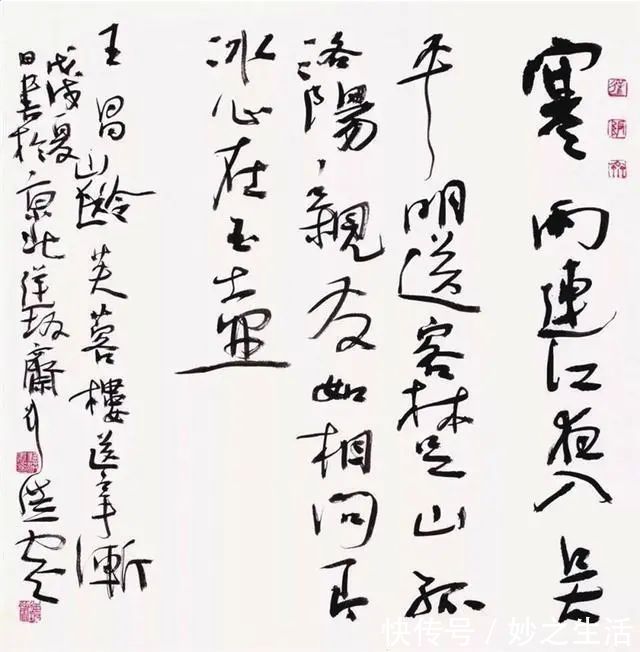 寒雨連江夜入吴
平明送客楚山孤
洛陽親友如相问一片
冰心在玉壺
王昌齡芙蓉樓送辛漸
戊戌夏
日書於京北齋
快传号 / 妙之生活